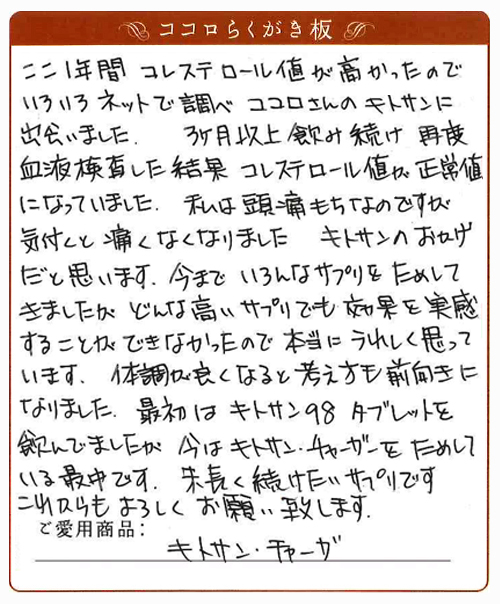 ココロらくがき板
ここ1年間 コレステロール値が高かったので
いろいろネットで調べ ココロさんのキトサンに
出会いました. 3ヶ月以上飲み続け 再度
血液検査した結果 コレステロール値が正常値
になっていました. 私は頭痛もちなのですが
気付くと痛くなくなりました キトサンのおかげ
だと思います. 今まで いろんなサプリを ためして
きましたが どんな高いサプリでも 効果を実感
することができなかったので 本当に うれしく思って
います. 体調が良くなると 考え方も前向きに
なりました. 最初は キトサン98 タブレットを
飲んでましたが 今はキトサン・チャーガーを ためして
いる最中です. 末長く続けたいサプリです
これからも よろしく お願い致します.
ご愛用商品:
キトサン・チャーガ